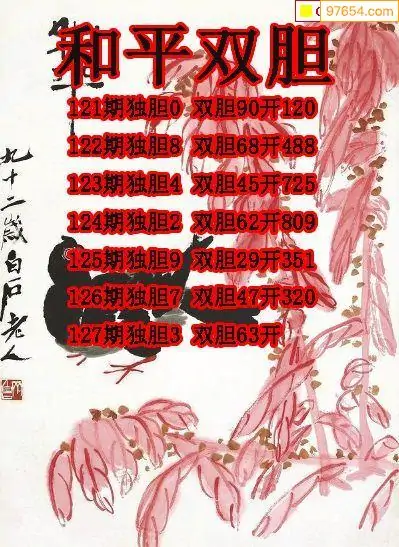 97654.com
和平双胆
121期独胆0 双胆90开120
122期独胆8 双胆68开488
123期独胆4 双胆45开725
124期独胆2 双胆62开809
125期独胆9 双胆29开351
126期独胆7 双胆47开320
127期独胆3 双胆63开
九十二岁白石老人